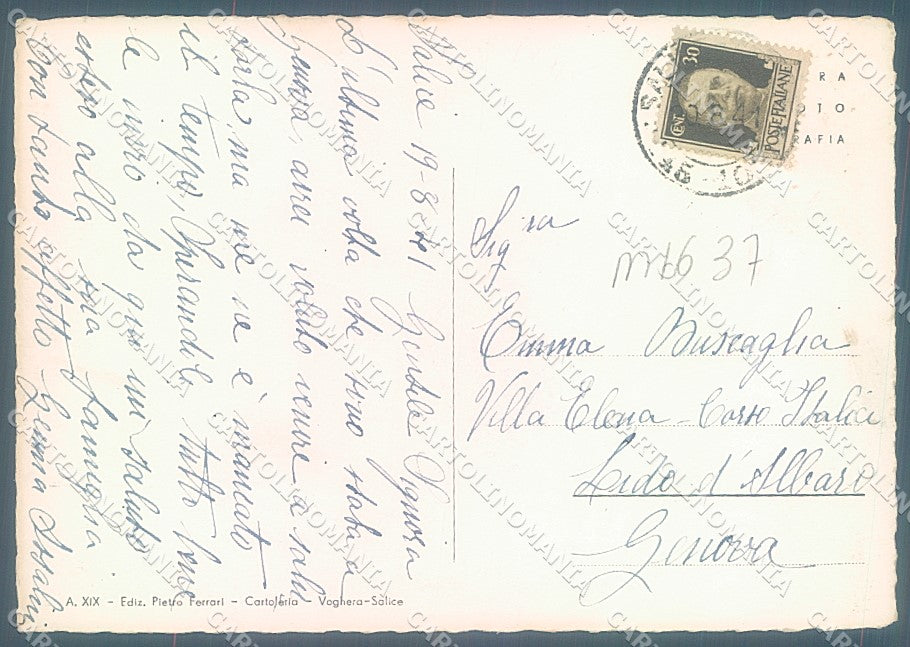 Salice 19-8-41 Gentile Signora
L'ultima volta che sono stata a
Genova avrei voluto venire a salu
tarla ma me ne è mancato
il tempo, Sperandola tutto bene
le invio da qui un saluto
esteso alla sua famiglia
Con tanto affetto Gemma
A. XIX - Ediz. Pietro Ferrari - Cartoleria - Voghera-Salice
CENT 30
POSTE ITALIANE
RA
OTO
RAFIA
Sig ra
mb6 37
Emma Buscaglia
Villa Elena - Corso Italia
Lido d'Albaro
Genova
CARTOLINOMANIA